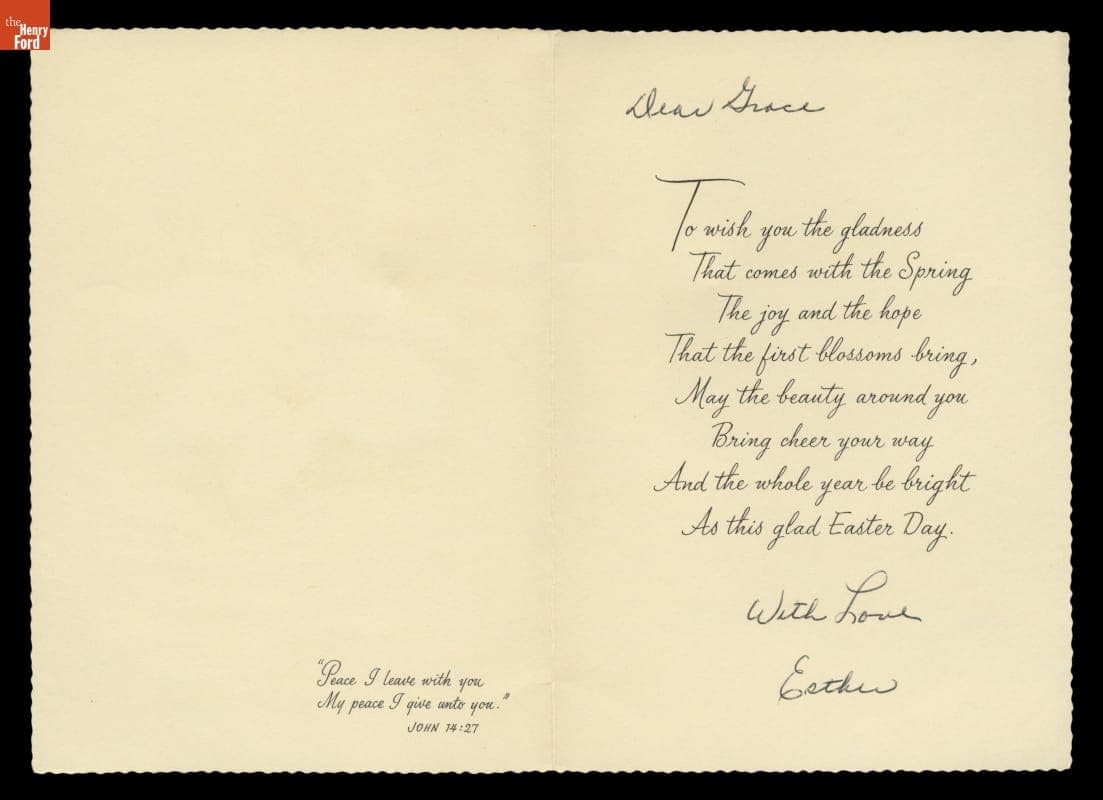 the
Henry
Ford
"Peace I leave with you
My peace I give unto you."
JOHN 14:27
Dear Grace
To wish you the gladness
That comes with the Spring
The joy and the hope
That the first blossoms bring,
May the beauty around you
Bring cheer your way
And the whole year be bright
As this glad Easter Day.
With Love
Esther